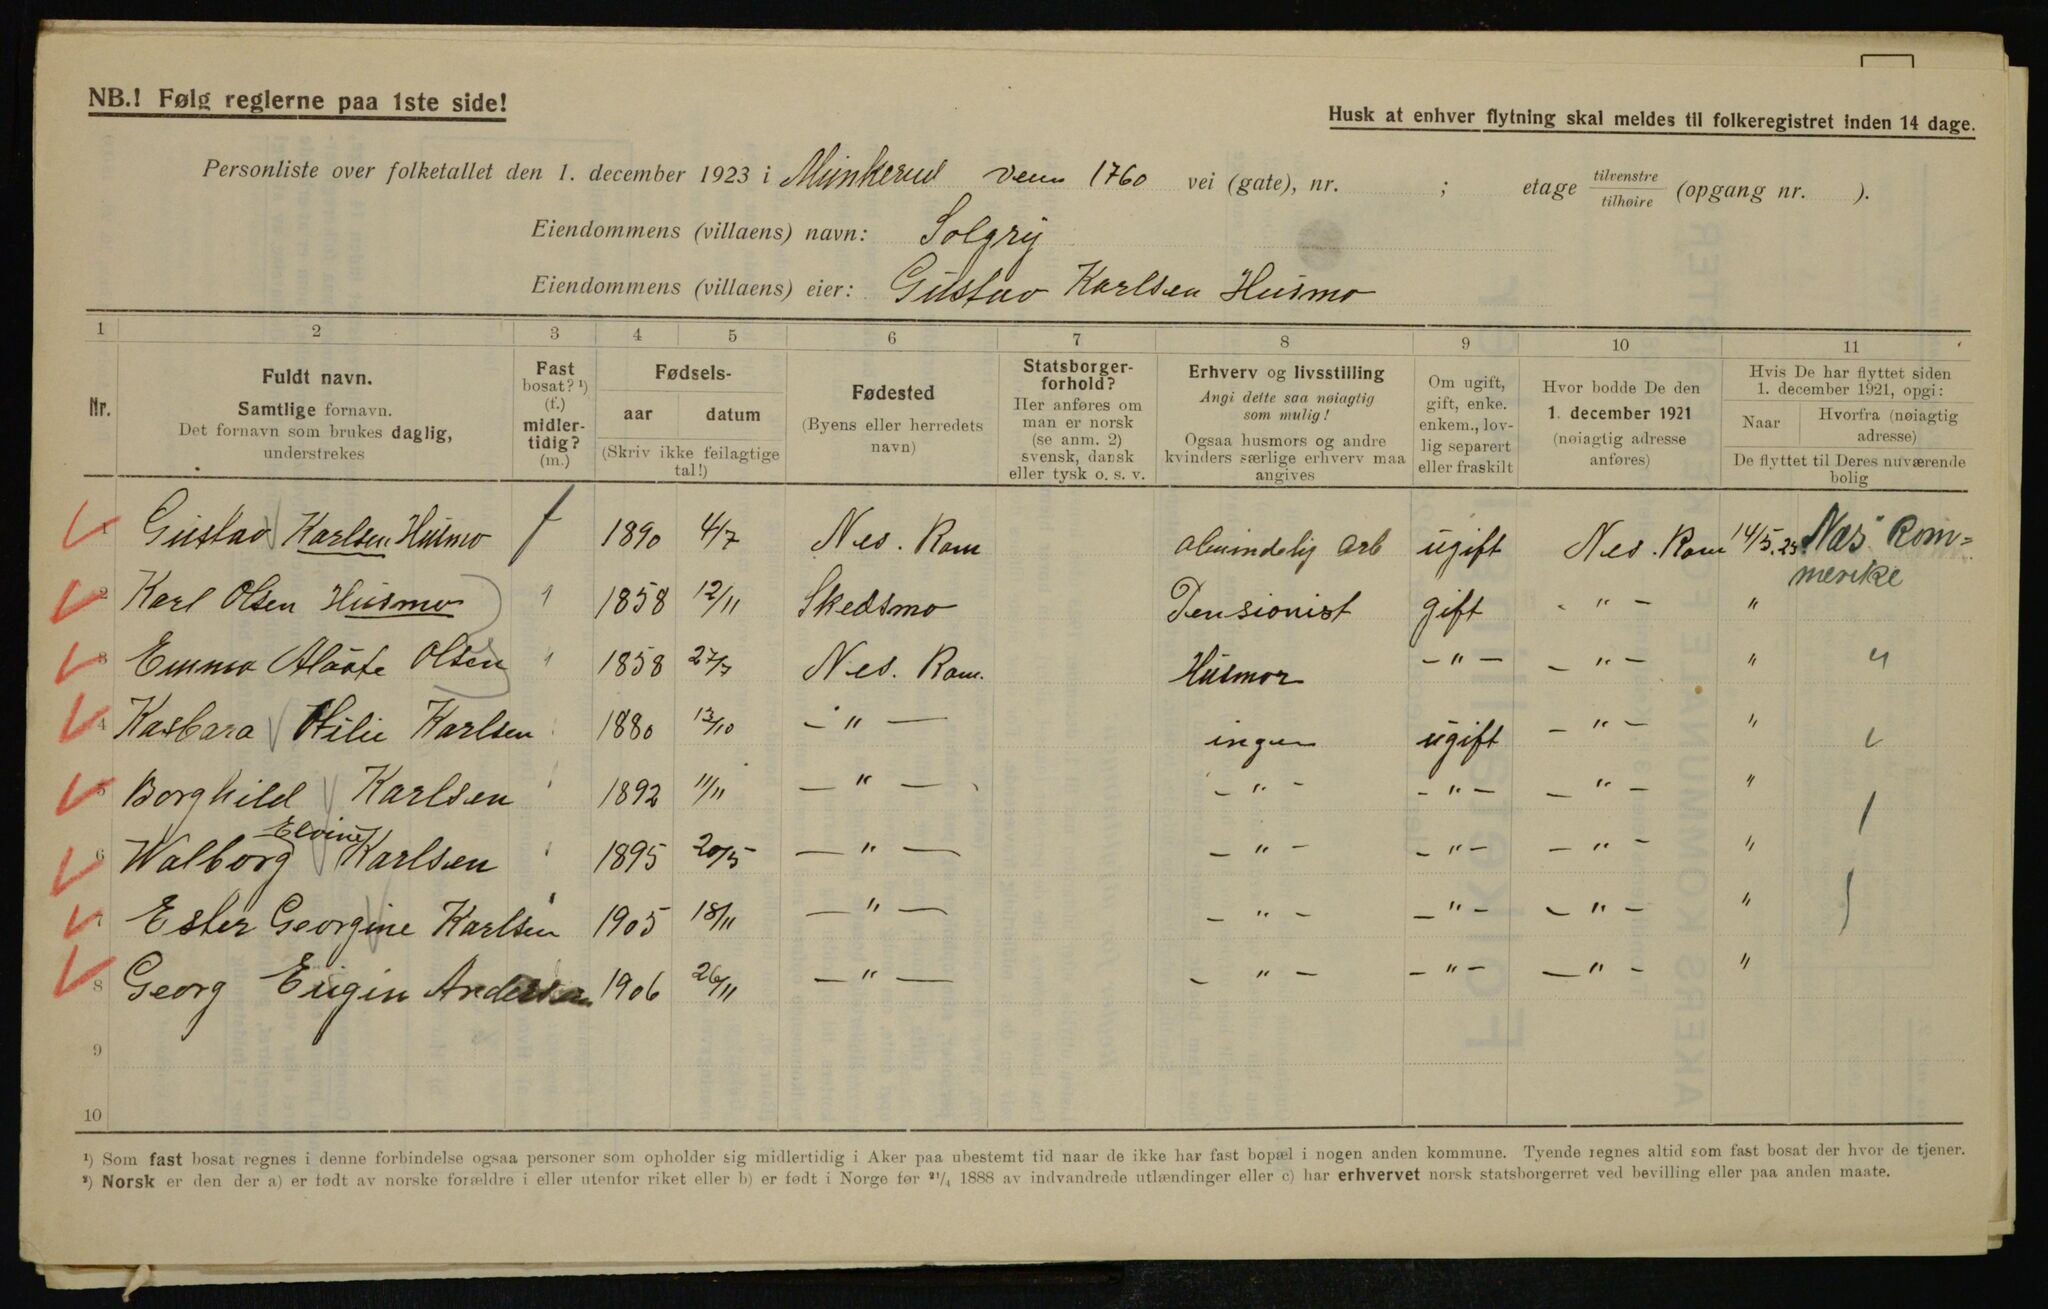 NB.! Følg reglerne paa 1ste side!
Husk at enhver flytning skal meldes til folkeregistret inden 14 dage.
Personliste over folketallet den 1. december 1923 i Munkerud veien 1760 vei (gate), nr. ; etage tilvenstre/tilhøire (opgang nr. ).
Eiendommens (villaens) navn: Solgry
Eiendommens (villaens) eier: Gustav Karlsen Husmo
1 2 3 4 5 6 7 8 9 10 11
Nr.
Fuldt navn.
Samtlige fornavn.
Det fornavn som brukes daglig,
understrekes
Fast
bosat? ¹)
(f.)
midler-
tidig?
(m.)
Fødsels-
aar datum
(Skriv ikke feilagtige
tal!)
Fødested
(Byens eller herredets
navn)
Statsborger-
forhold?
Her anføres om
man er norsk
(se anm. 2)
svensk, dansk
eller tysk o. s. v.
Erhverv og livsstilling
Angi dette saa nøiagtig
som mulig!
Ogsaa husmors og andre
kvinders særlige erhverv maa
angives
Om ugift,
gift, enke.
enkem., lov-
lig separert
eller fraskilt
Hvor bodde De den
1. december 1921
(nøiagtig adresse
anføres)
Hvis De har flyttet siden
1. december 1921, opgi:
Naar Hvorfra (nøiagtig
adresse)
De flyttet til Deres nuværende
bolig
1 Gustav Karlsen Husmo f 1890 4/7 Nes. Rom almindelig arb ugift Nes. Rom 14/5.23 Nes Rom=
merike
2 Karl Olsen Husmo " 1858 12/11 Skedsmo Pensionist gift - " - "
3 Emma Olsen " 1858 27/7 Nes. Rom. Husmor - " - - " - " "
4 Kasbara Otilie Karlsen 1880 13/10 - " - ingen ugift - " - "
5 Borghild Karlsen 1892 11/11 - " - - " - - " - - " - "
6 Walborg Elvine Karlsen 1895 20/5 - " - - " - - " - - " - "
7 Ester Georgine Karlsen 1905 18/11 - " - - " - - " - - " - "
8 Georg Eugin Andersen 1906 26/11 - " - - " - - " - - " - "
9
10
¹) Som fast bosat regnes i denne forbindelse ogsaa personer som opholder sig midlertidig i Aker paa ubestemt tid naar de ikke har fast bopæl i nogen anden kommune. Tyende regnes altid som fast bosat der hvor de tjener.
²) Norsk er den der a) er født av norske forældre i eller utenfor riket eller b) er født i Norge før 21/4 1888 av indvandrede utlændinger eller c) har erhvervet norsk statsborgerret ved bevilling eller paa anden maate.